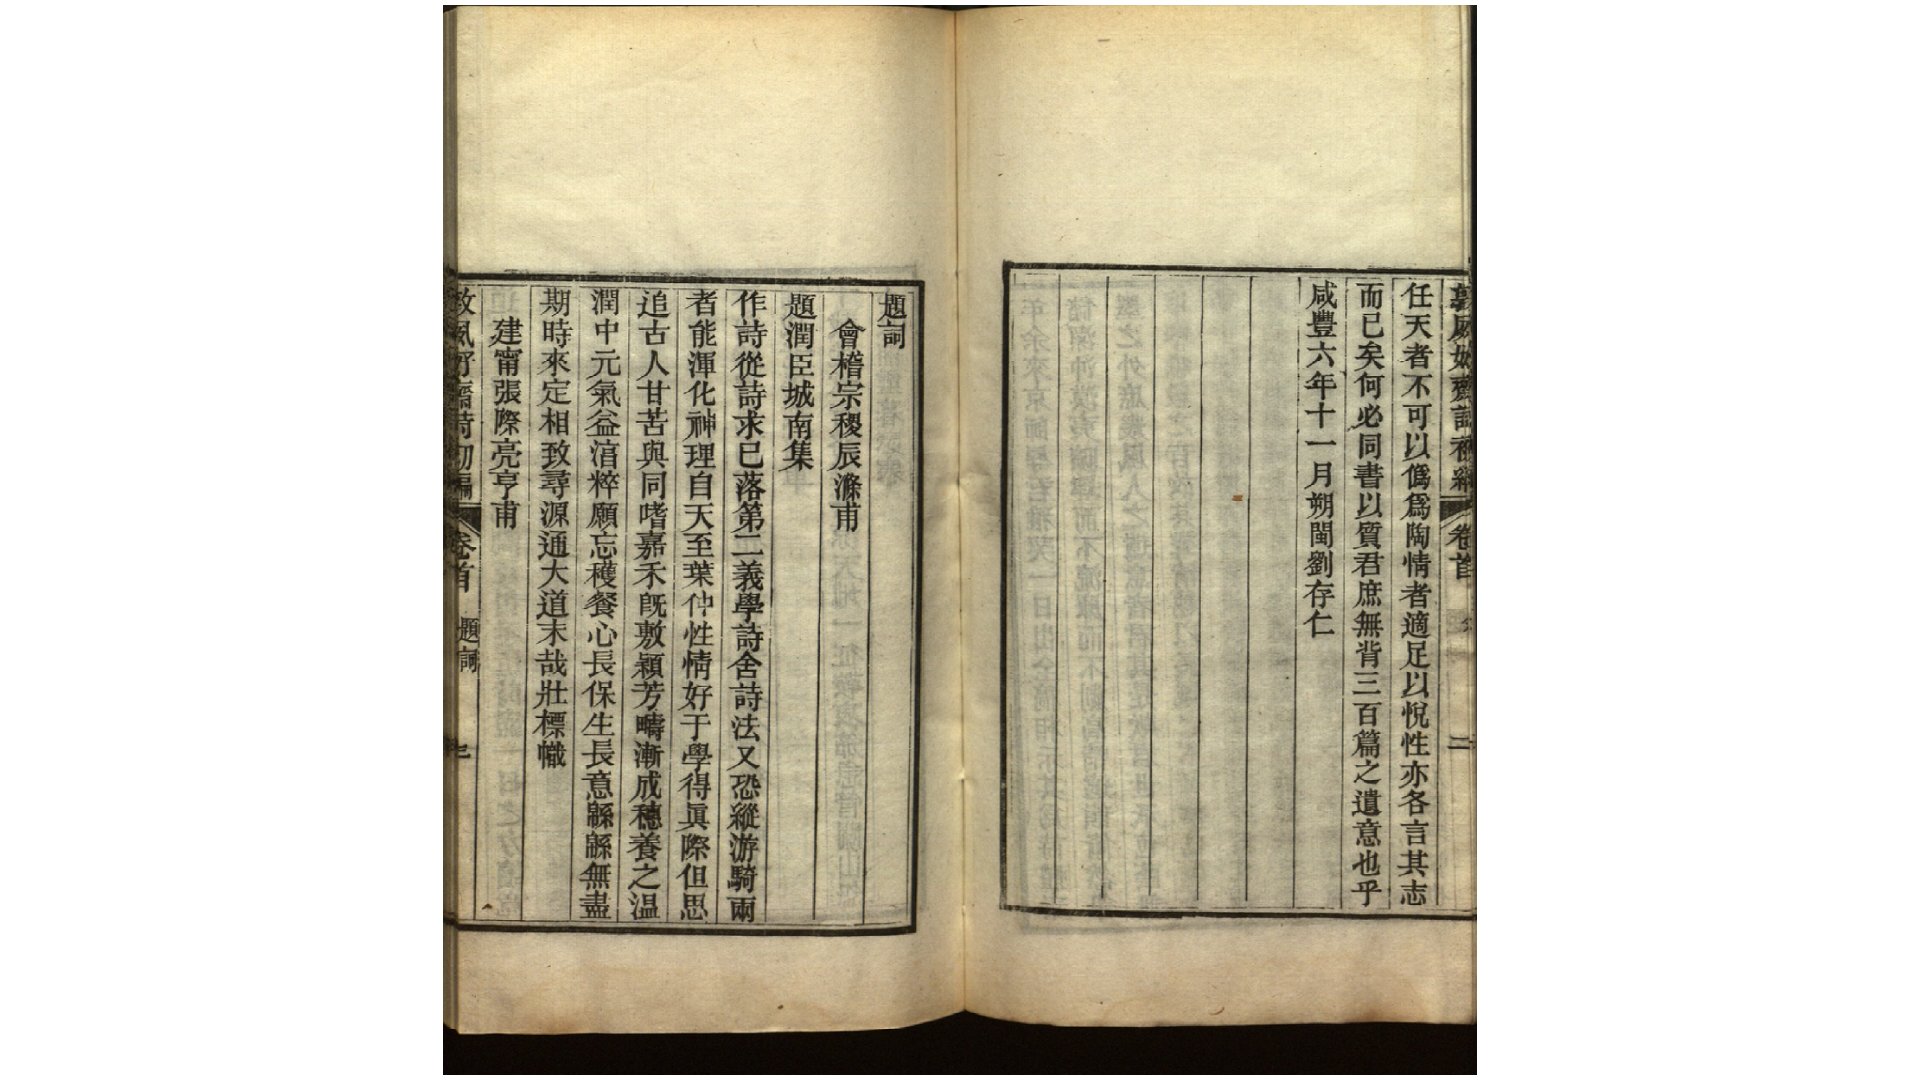 敦夙好齋詩初編 卷首 二
任天者不可以僞爲陶情者適足以悅性亦各言其志
而已矣何必同書以質君庶無背三百篇之遺意也乎
咸豐六年十一月朔閩劉存仁
題詞
會稽宗稷辰滌甫
題潤臣城南集
作詩從詩求已落第二義學詩舍詩法又恐縱游騎兩
者能渾化神理自天至葉仲性情好于學得眞際但思
追古人甘苦與同嗜嘉禾旣敷穎芳疇漸成穗養之温
潤中元氣益涫粹願忘穫餐心長保生長意緜緜無盡
期時來定相致尋源通大道末哉壯標幟
建甯張際亮亨甫
敦夙好齋詩初編 卷首 題詞 三